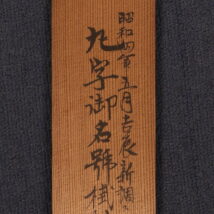 昭和四年五月吉辰新調
九字御名號掛